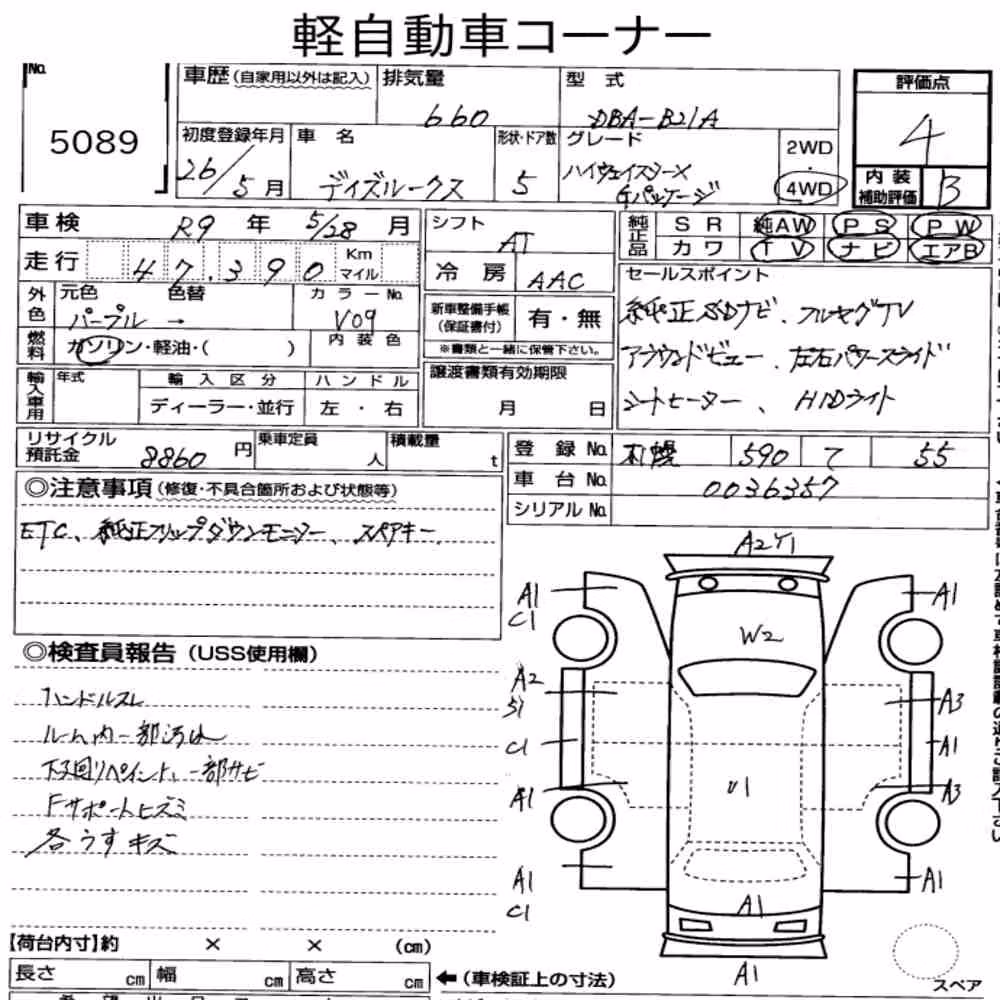 軽自動車コーナー
No.
5089
車歴(自家用以外は記入)
排気量
660
型式
DBA-B21A
評価点
4
初度登録年月
26/5月
車名
デイズルークス
形状・ドア数
5
グレード
ハイウェイスターX
Gパッケージ
2WD
・
4WD
内装
補助評価
B
車検
R9年5/28月
走行
47,390
Km
マイル
シフト
AT
冷房
AAC
純正品
SR
純AW
PS
PW
カワ
TV
ナビ
エアB
外色
元色
色替
パープル →
カラーNo.
V09
燃料
ガソリン・軽油・( )
内装色
新車整備手帳
(保証書付)
有・無
※書類と一緒に保管下さい。
セールスポイント
純正SDナビ、フルセグTV
アラウンドビュー、左右パワースライド
シートヒーター、HIDライト
輸入車用
年式
輸入区分
ディーラー・並行
ハンドル
左・右
譲渡書類有効期限
月 日
リサイクル
預託金
8860円
乗車定員
人
積載量
t
登録No.
札幌 590 て 55
車台No.
0036357
シリアルNo.
◎注意事項(修復・不具合箇所および状態等)
ETC、純正フリップダウンモニター、スペアキー
◎検査員報告(USS使用欄)
ハンドルスレ
ルーム内一部汚れ
下廻りペイント、一部サビ
Fサポートヒズミ
各うすキズ
A2Y1
A1
C1
A1
W2
A2
S1
A3
C1
A1
A1
U1
A3
A1
C1
A1
A1
A1
スペア
【荷台内寸】約 × × (cm)
長さ cm
幅 cm
高さ cm
←(車検証上の寸法)